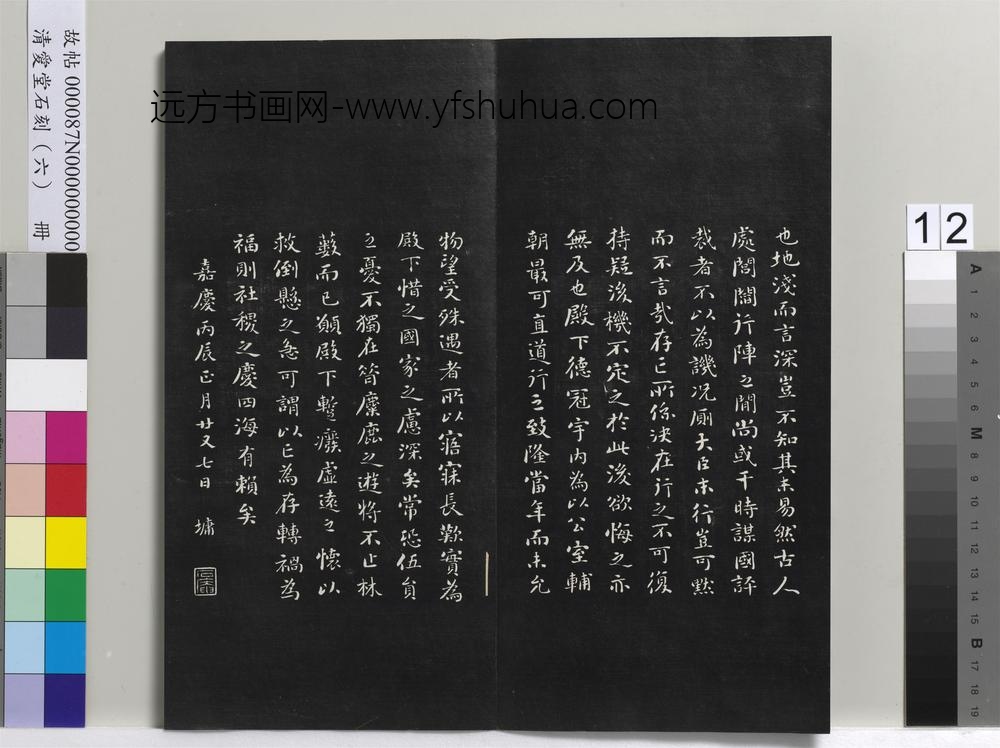 故帖 000087N000000000
清愛堂石刻（六） 冊
远方书画网-www.yfshuhua.com
12
也地淺而言深豈不知其未易然古人
處閭閻行陣之間尚或干時謀國評
裁者不以為譏况厠大臣末行豈可黙
而不言哉存亡所係決在行之不可復
待疑後機不定之於此後欲悔之亦
無及也殿下德冠宇内為以公室輔
朝最可直道行之致隆當年而未允
物望受殊遇者所以寤寐長歎實為
殿下惜之國家之慮深矣常恐伍貟
之憂不獨在昔麋鹿之遊將不止林
藪而已願殿下蹔癈虛遠之懷以
救倒懸之急可謂以亡為存轉禍為
福則社稷之慶四海有賴矣
嘉慶丙辰正月廿又七日 墉
A 1 2 3 4 5 6 M 8 9 10 11 12 13 14 15 B 17 18 19